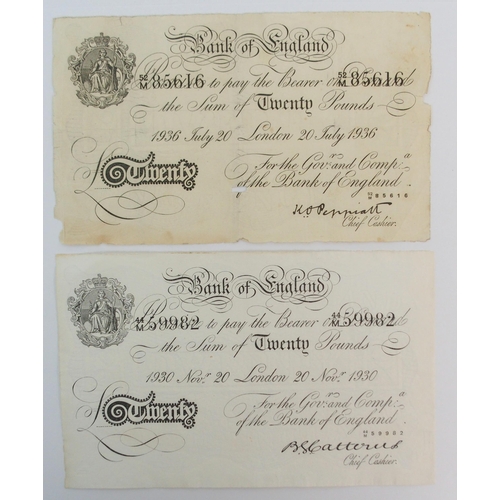 Bank of England
52/M 85616 to pay the Bearer on 52/M 85616
the Sum of Twenty Pounds
1936 July 20 London 20 July 1936
For the Govr. and Compa.
£ Twenty of the Bank of England.
85616
K.O. Peppiatt
Chief Cashier.
Bank of England
44/M 59982 to pay the Bearer on 44/M 59982
the Sum of Twenty Pounds
1930 Novr. 20 London 20 Novr. 1930
For the Govr. and Compa.
£ Twenty of the Bank of England.
59982
B.G. Catterns
Chief Cashier.